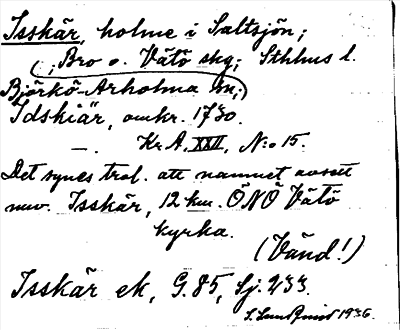 Isskär, holme i Saltsjön;
(; Bro o. Vätö skg; Sthlms l.
Björkö-Arholma sn;)
Idskiär, omkr. 1730.
—. Kr. A. XXII, No 15.
Det synes trol. att namnet avsett
nuv. Isskär, 12 km. ÖNÖ Vätö
kyrka.
(Vänd!)
Isskär ek, G. 85, Sj. 233.
1936.